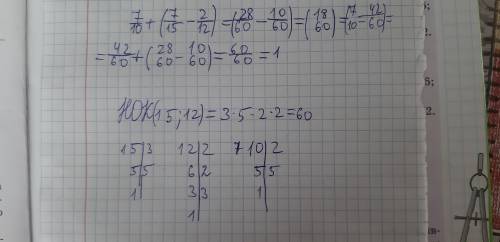 7/10 + (7/15 − 2/12) = (28/60 − 10/60) = (18/60) = (7/10 − 42/60) =
= 42/60 + (28/60 − 10/60) = 60/60 = 1
НОК(15;12) = 3·5·2·2 = 60
15|3 12|2 7 10|2
5|5 6|2 5|5
1| 3|3 1|
1|
2.